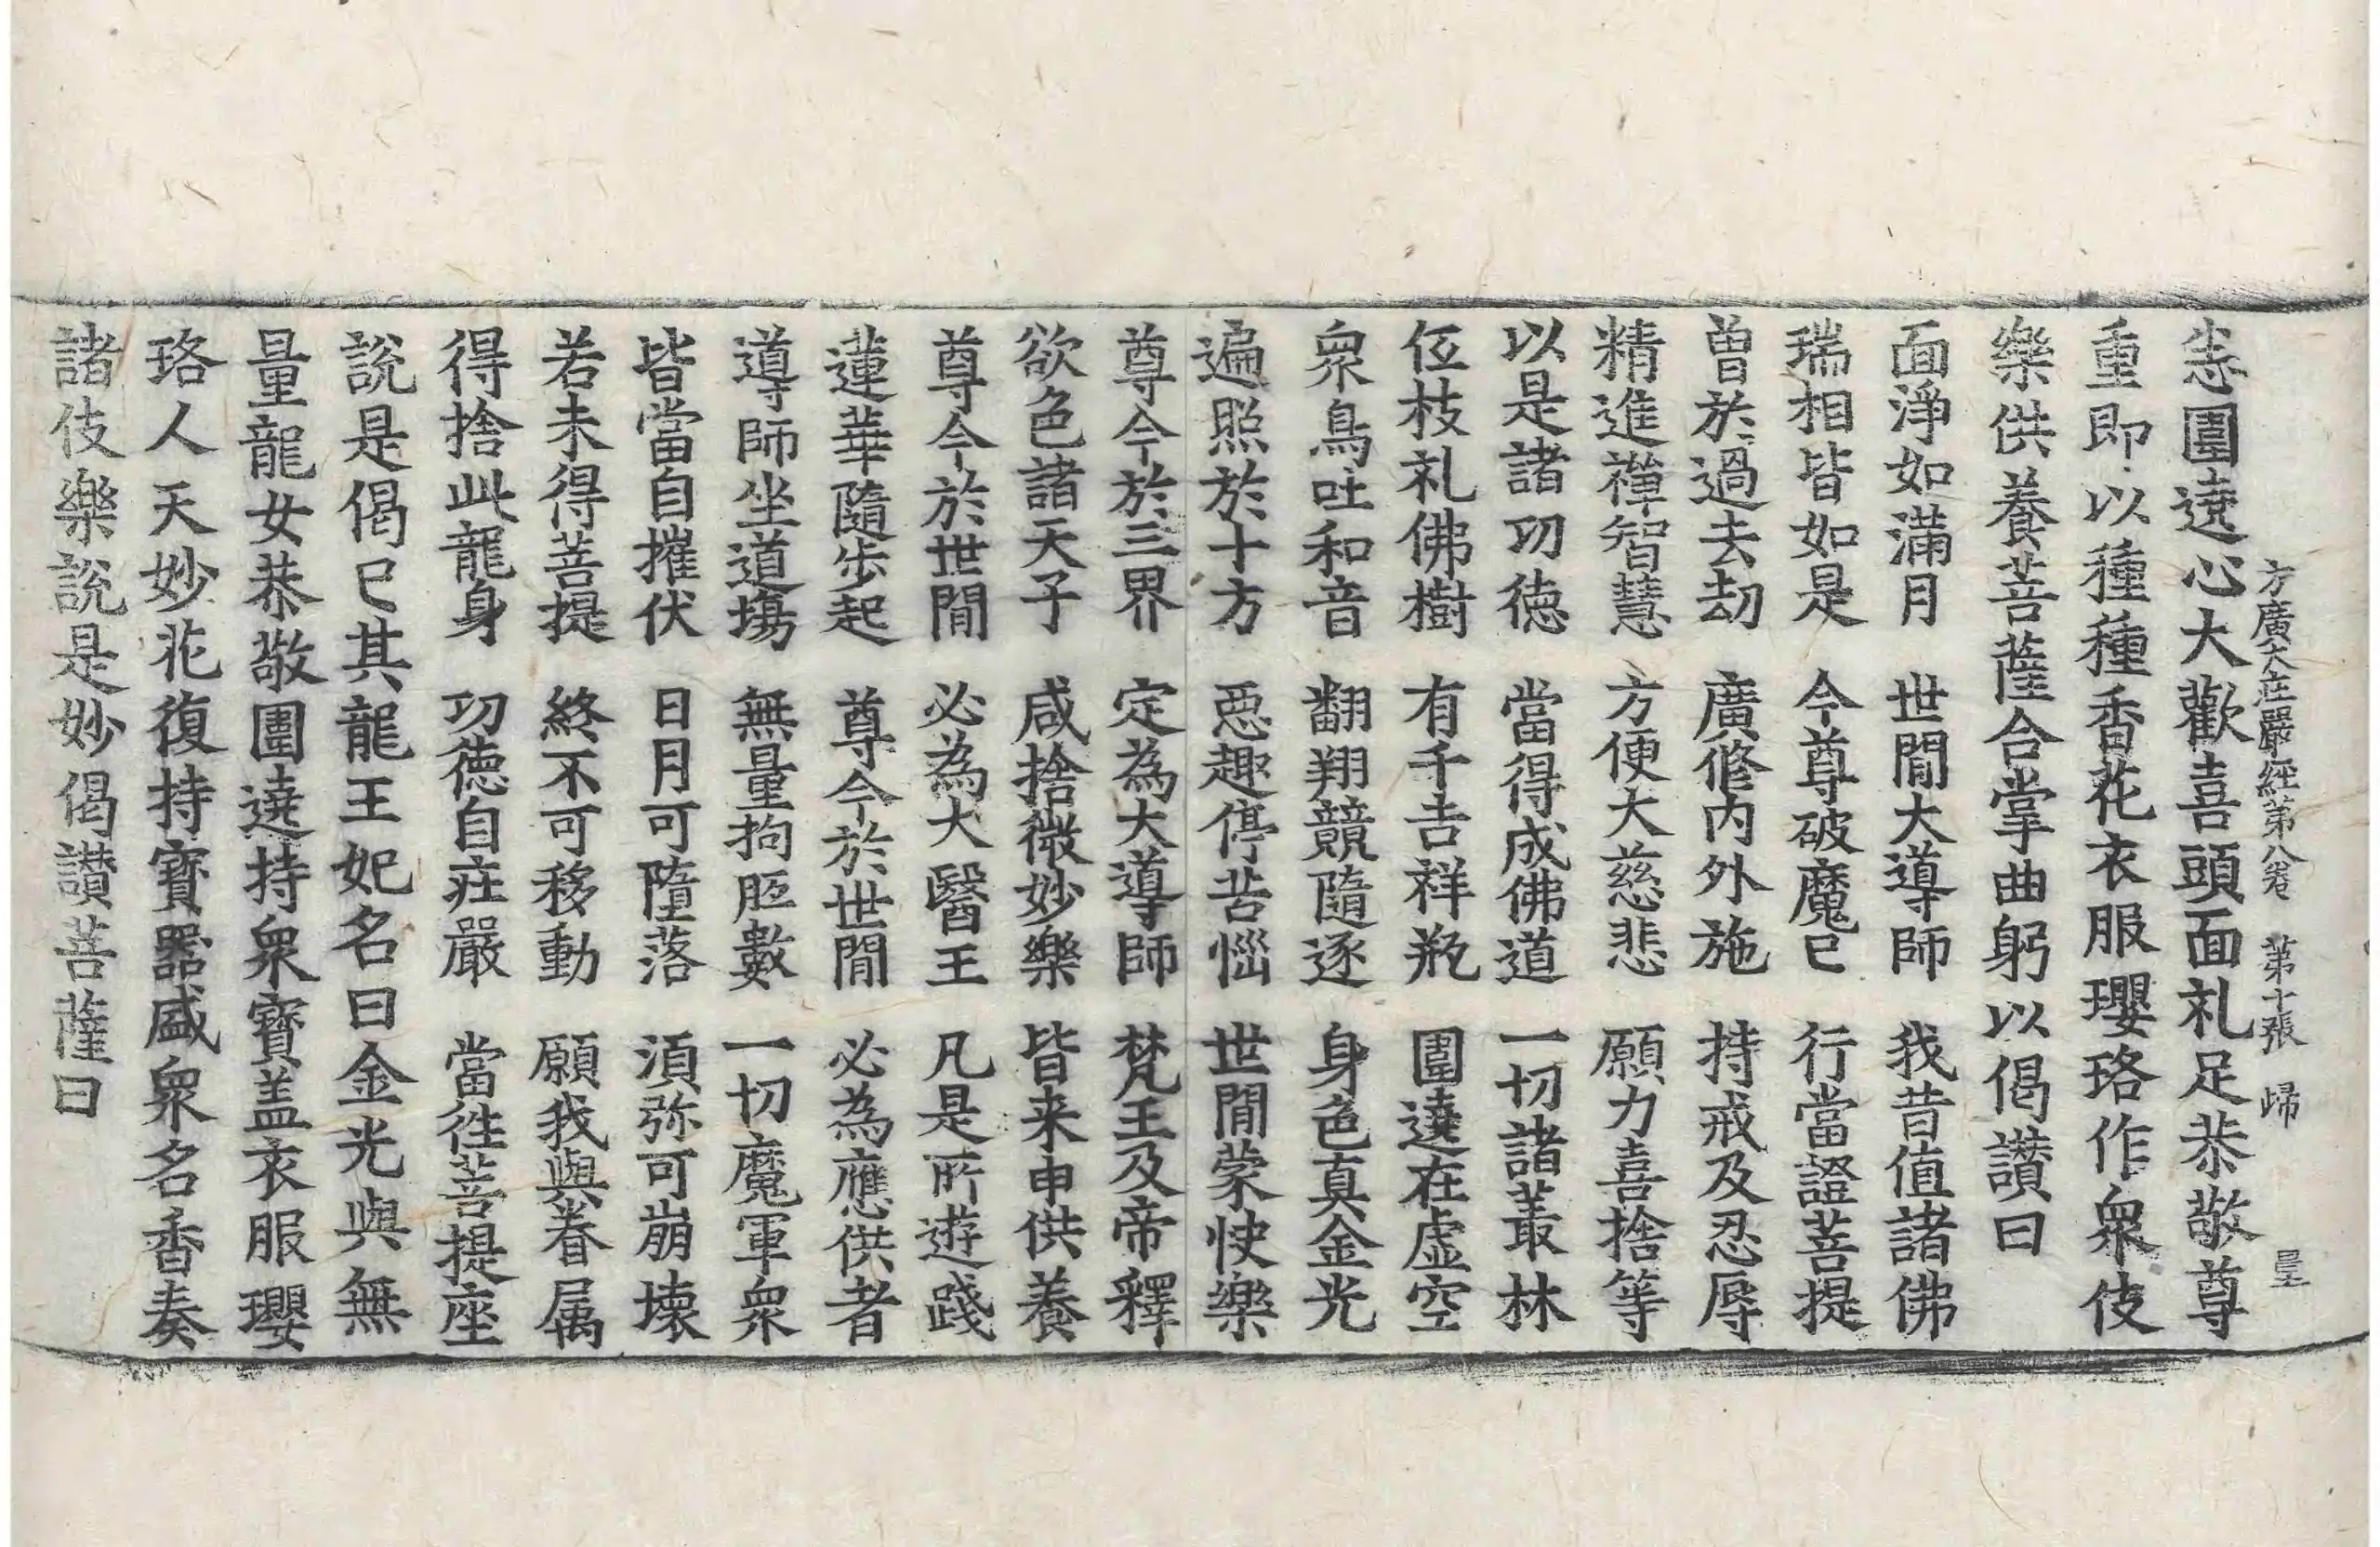 方廣大庄嚴經第八卷 第十張 歸
恙圍遶心大歡喜頭面礼足恭敬尊
重即以種種香花衣服瓔珞作衆伎
樂供養菩薩合掌曲躬以偈讃曰
面淨如滿月 世閒大導師 我昔值諸佛
瑞相皆如是 今尊破魔已 行當證菩提
曾於過去劫 廣修内外施 持戒及忍辱
精進禪智慧 方便大慈悲 願力喜捨等
以是諸功徳 當得成佛道 一切諸叢林
低枝礼佛樹 有千吉祥瓶 圍遶在虛空
衆鳥吐和音 翻翔競隨逐 身色真金光
遍照於十方 惡趣停苦惱 世閒蒙快樂
尊今於三界 定為大導師 梵王及帝釋
欲色諸天子 咸捨微妙樂 皆来申供養
尊今於世閒 必為大醫王 凡是所遊踐
蓮華隨步起 尊今於世閒 必為應供者
導師坐道場 無量拘胝數 一切魔軍衆
皆當自摧伏 日月可墮落 須弥可崩壊
若未得菩提 終不可移動 願我與眷属
得捨此龍身 功徳自庄嚴 當徃菩提座
說是偈已其龍王妃名曰金光與無
量龍女恭敬圍遶持衆寶盖衣服瓔
珞人天妙花復持寶器盛衆名香奏
諸伎樂說是妙偈讃菩薩曰